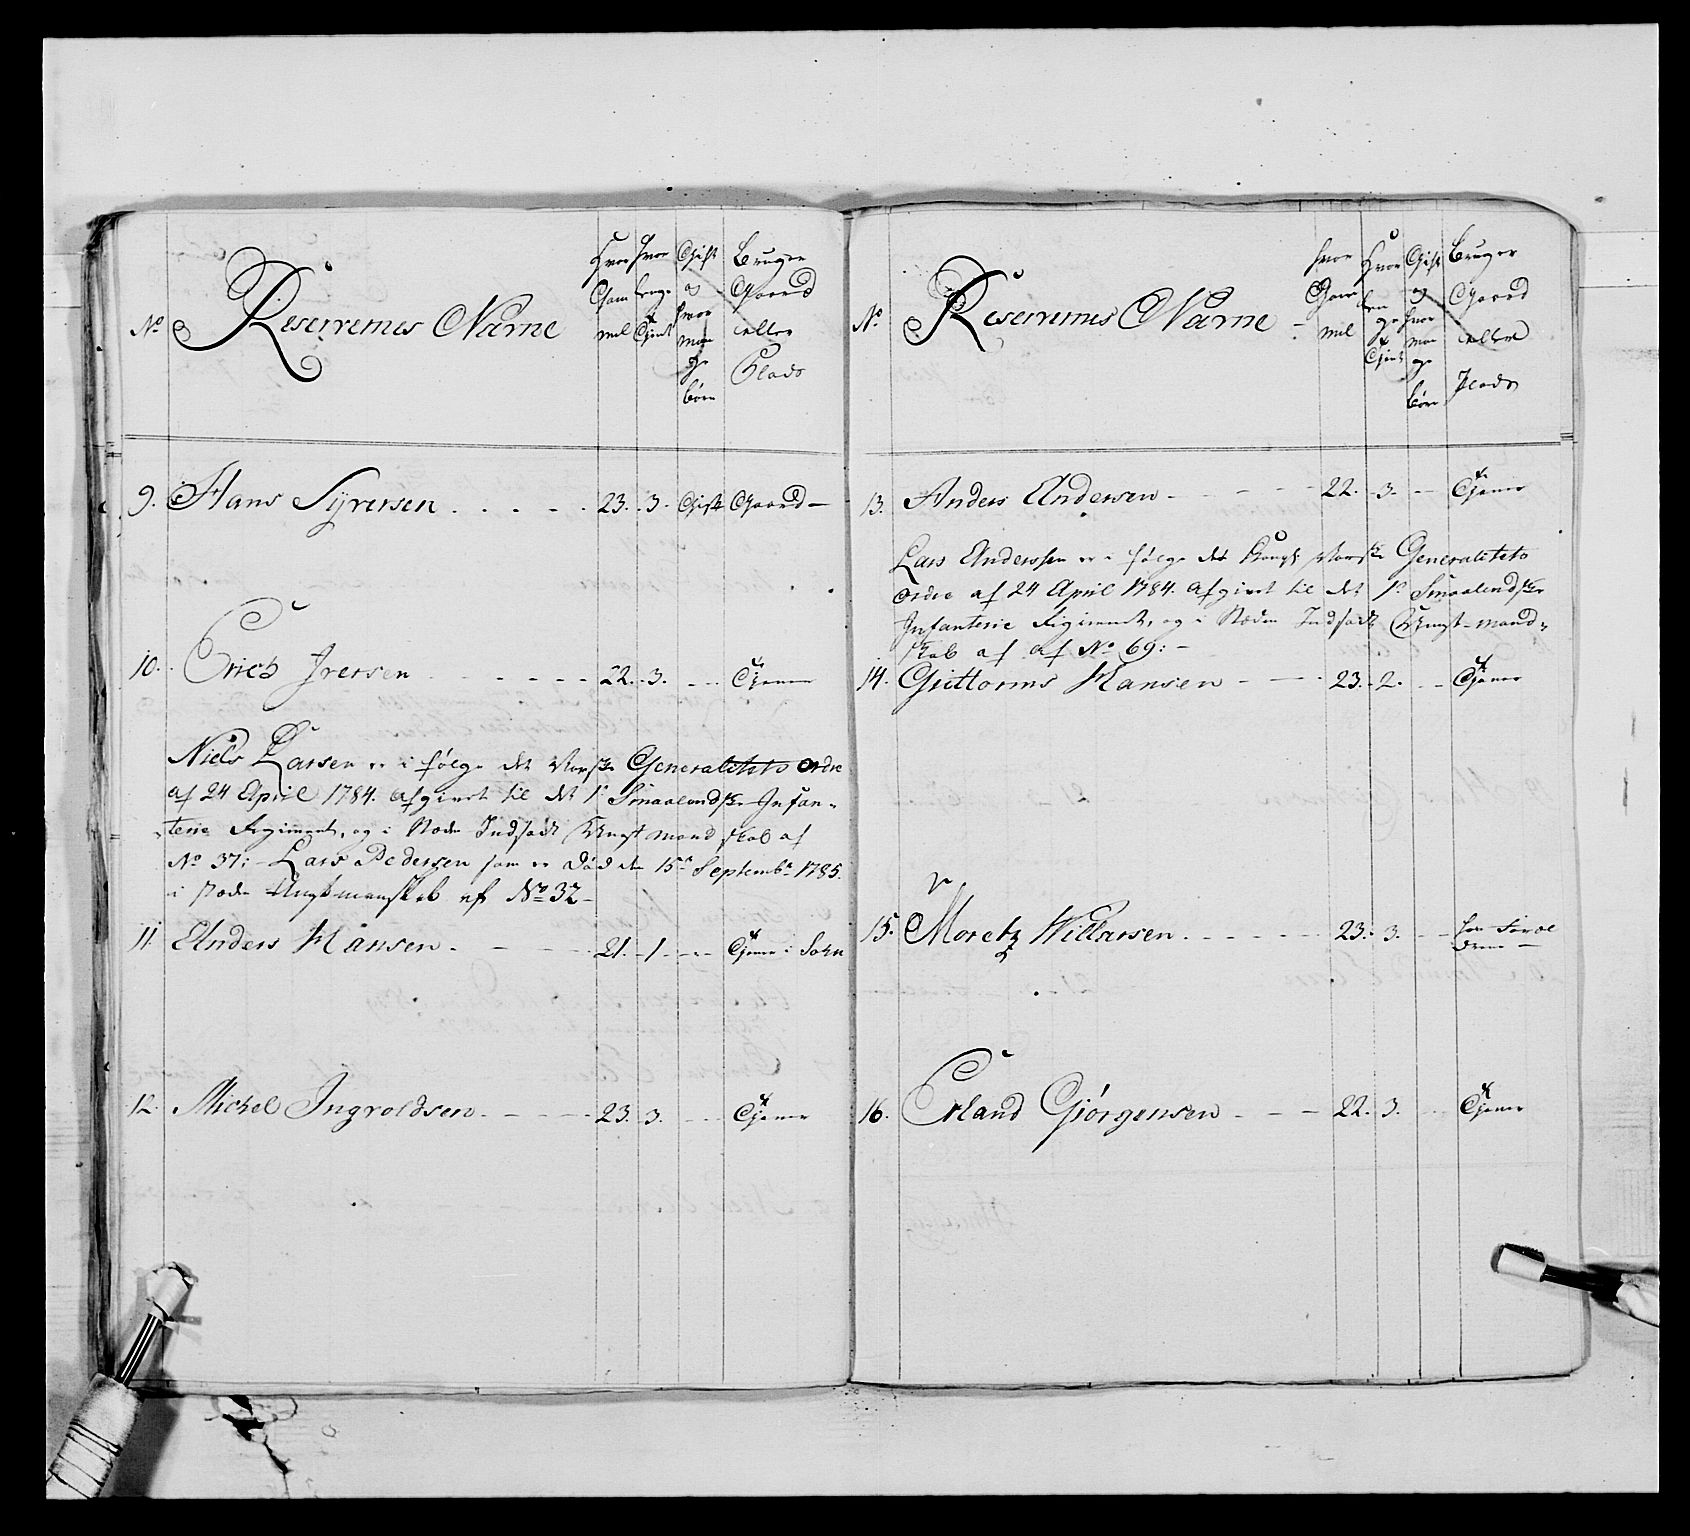 No
Reserrernes Nafrne
Hvor
Gam
mel
Hvor
lenge
tjent
Gift
og
hvor
man
ge
børn
Bruger
Gaard
eller
Plads
9. Hans Syversen 23. 3. Gift Gaard
10. Erich Iversen 22. 3. Tjener
Niels Larsen er i følge det Norske Generalitets Ordre
af 24 April 1784. afgivet til det 1te Smaalendske Infan-
terie Regiment, og i Stæden Indsadt Ungt mandskab af
No 37: Lars Pedersen som er død den 15de Septembr 1785.
i stæden Ungtmanskab af No 32
11. Anders Hansen 21. 1 Tjener i Sogn
12. Michel Ingvoldsen 23. 3. Tjener
No
Reserrernes Nafrne
hvor
Gam
mel
Hvor
len
ge
tjent
Gift
og
hvor
man
ge
børn
Bruger
Gaard
eller
Plads
13. Anders Andersen 22. 3. Tjener
Lars Anderssen er i følge det Kongl: Norske Generalitets
Ordre af 24 April 1784. afgivet til det 1te Smaalendske
Infanterie Regiment, og i Stæden Indsadt Ungt-mand-
skab af af No 69:
14. Guttorms Hansen 23. 2. Tjener
15. Moretz Willarsen 23. 3.
16. Erland Gjørgensen 22. 3. Tjener